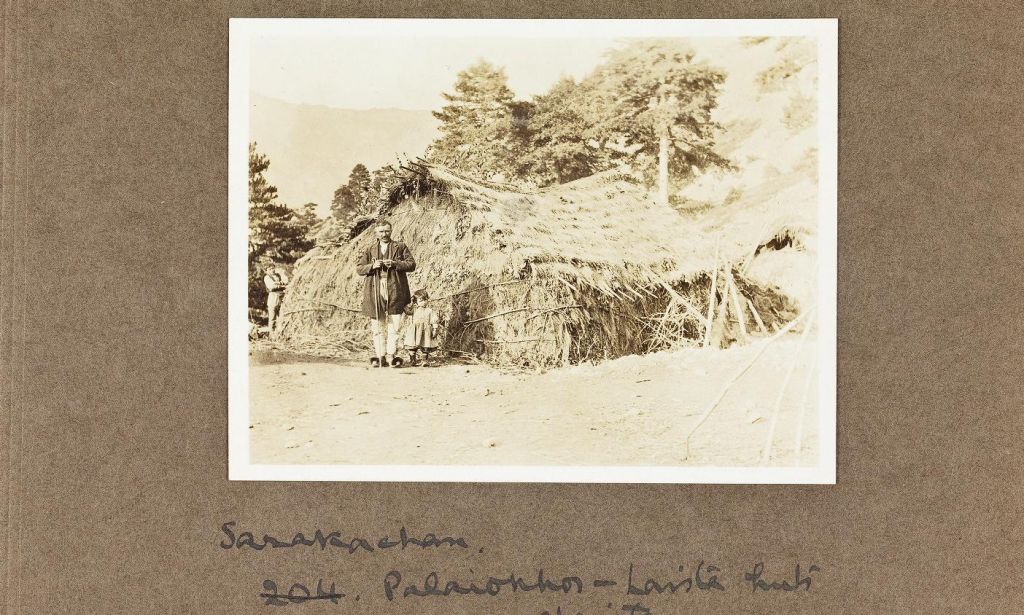 Sarakachan.
204. Palaiokhos - Laista huts